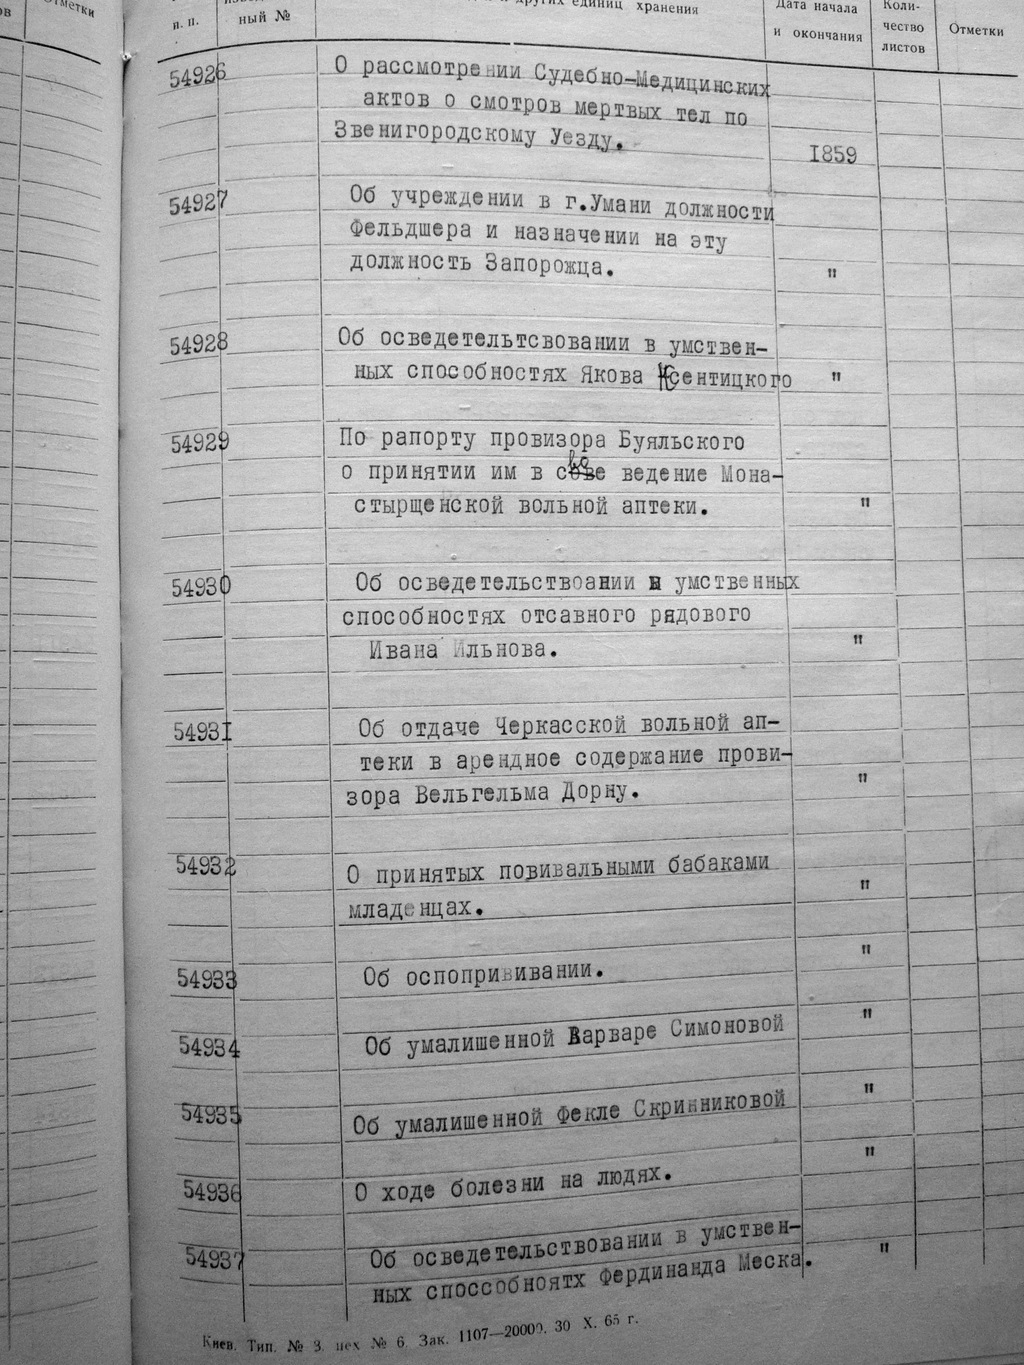 Отметки
п. п.
ный №
других единиц хранения
Дата начала
и окончания
Коли-
чество
листов
Отметки
54926
О рассмотрении Судебно-Медицинских
актов о смотров мертвых тел по
Звенигородскому Уезду.
1859
54927
Об учреждении в г.Умани должности
Фельдшера и назначении на эту
должность Запорожца.
"
54928
Об осведетельтсвовании в умствен-
ных способностях Якова Ксентицкого
"
54929
По рапорту провизора Буяльского
о принятии им в свое ведение Мона-
стырщенской вольной аптеки.
"
54930
Об осведетельствоании в умственных
способностях отсавного рядового
Ивана Ильнова.
"
54931
Об отдаче Черкасской вольной ап-
теки в арендное содержание прови-
зора Вельгельма Дорну.
"
54932
О принятых повивальными бабаками
младенцах.
"
54933
Об оспопрививании.
"
54934
Об умалишенной Варваре Симоновой
"
54935
Об умалишенной Фекле Скринниковой
"
54936
О ходе болезни на людях.
"
54937
Об осведетельствовании в умствен-
ных споссобноятх Фердинанда Меска.
"
Киев. Тип. № 3. цех № 6. Зак. 1107—20000. 30 X. 65 г.